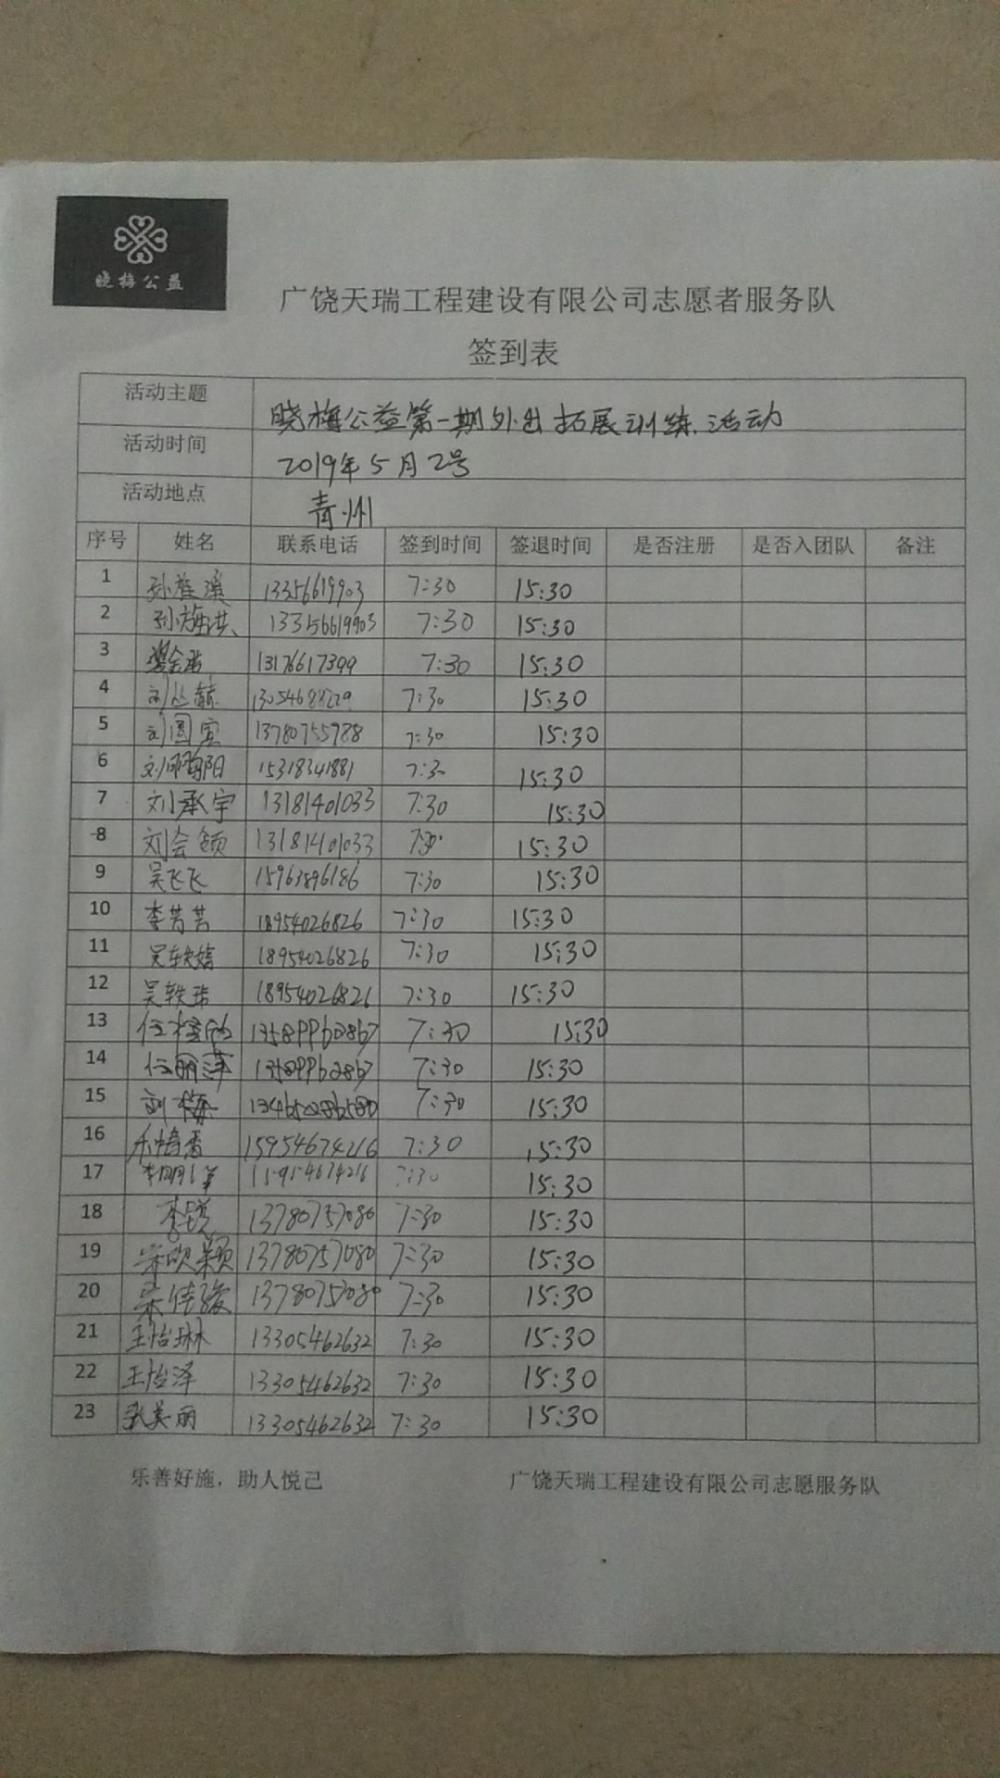 晓梅公益
广饶天瑞工程建设有限公司志愿者服务队
签到表
活动主题 晓梅公益第一期外出拓展训练活动
活动时间 2019年5月2号
活动地点 青州
序号 姓名 联系电话 签到时间 签退时间 是否注册 是否入团队 备注
1 孙 溪 13356619903 7:30 15:30
2 孙梅洪 13356619903 7:30 15:30
3 13176617399 7:30 15:30
4 刘 7:30 15:30
5 刘国宾 13780755988 7:30 15:30
6 刘 阳 15318341881 7:30 15:30
7 刘承宇 13181401033 7:30 15:30
8 刘会 13181401033 7:30 15:30
9 吴飞飞 15963896186 7:30 15:30
10 李芳芳 18954026826 7:30 15:30
11 吴轶 18954026826 7:30 15:30
12 吴轶 18954026826 7:30 15:30
13 任 13589962867 7:30 15:30
14 任丽萍 13589962867 7:30 15:30
15 刘梅 7:30 15:30
16 15954674216 7:30 15:30
17 李 7:30 15:30
18 李 13780757080 7:30 15:30
19 宋欣颖 13780757080 7:30 15:30
20 宋佳骏 13780757080 7:30 15:30
21 王怡琳 13305462632 7:30 15:30
22 王怡泽 13305462632 7:30 15:30
23 张美丽 13305462632 7:30 15:30
乐善好施，助人悦己 广饶天瑞工程建设有限公司志愿服务队